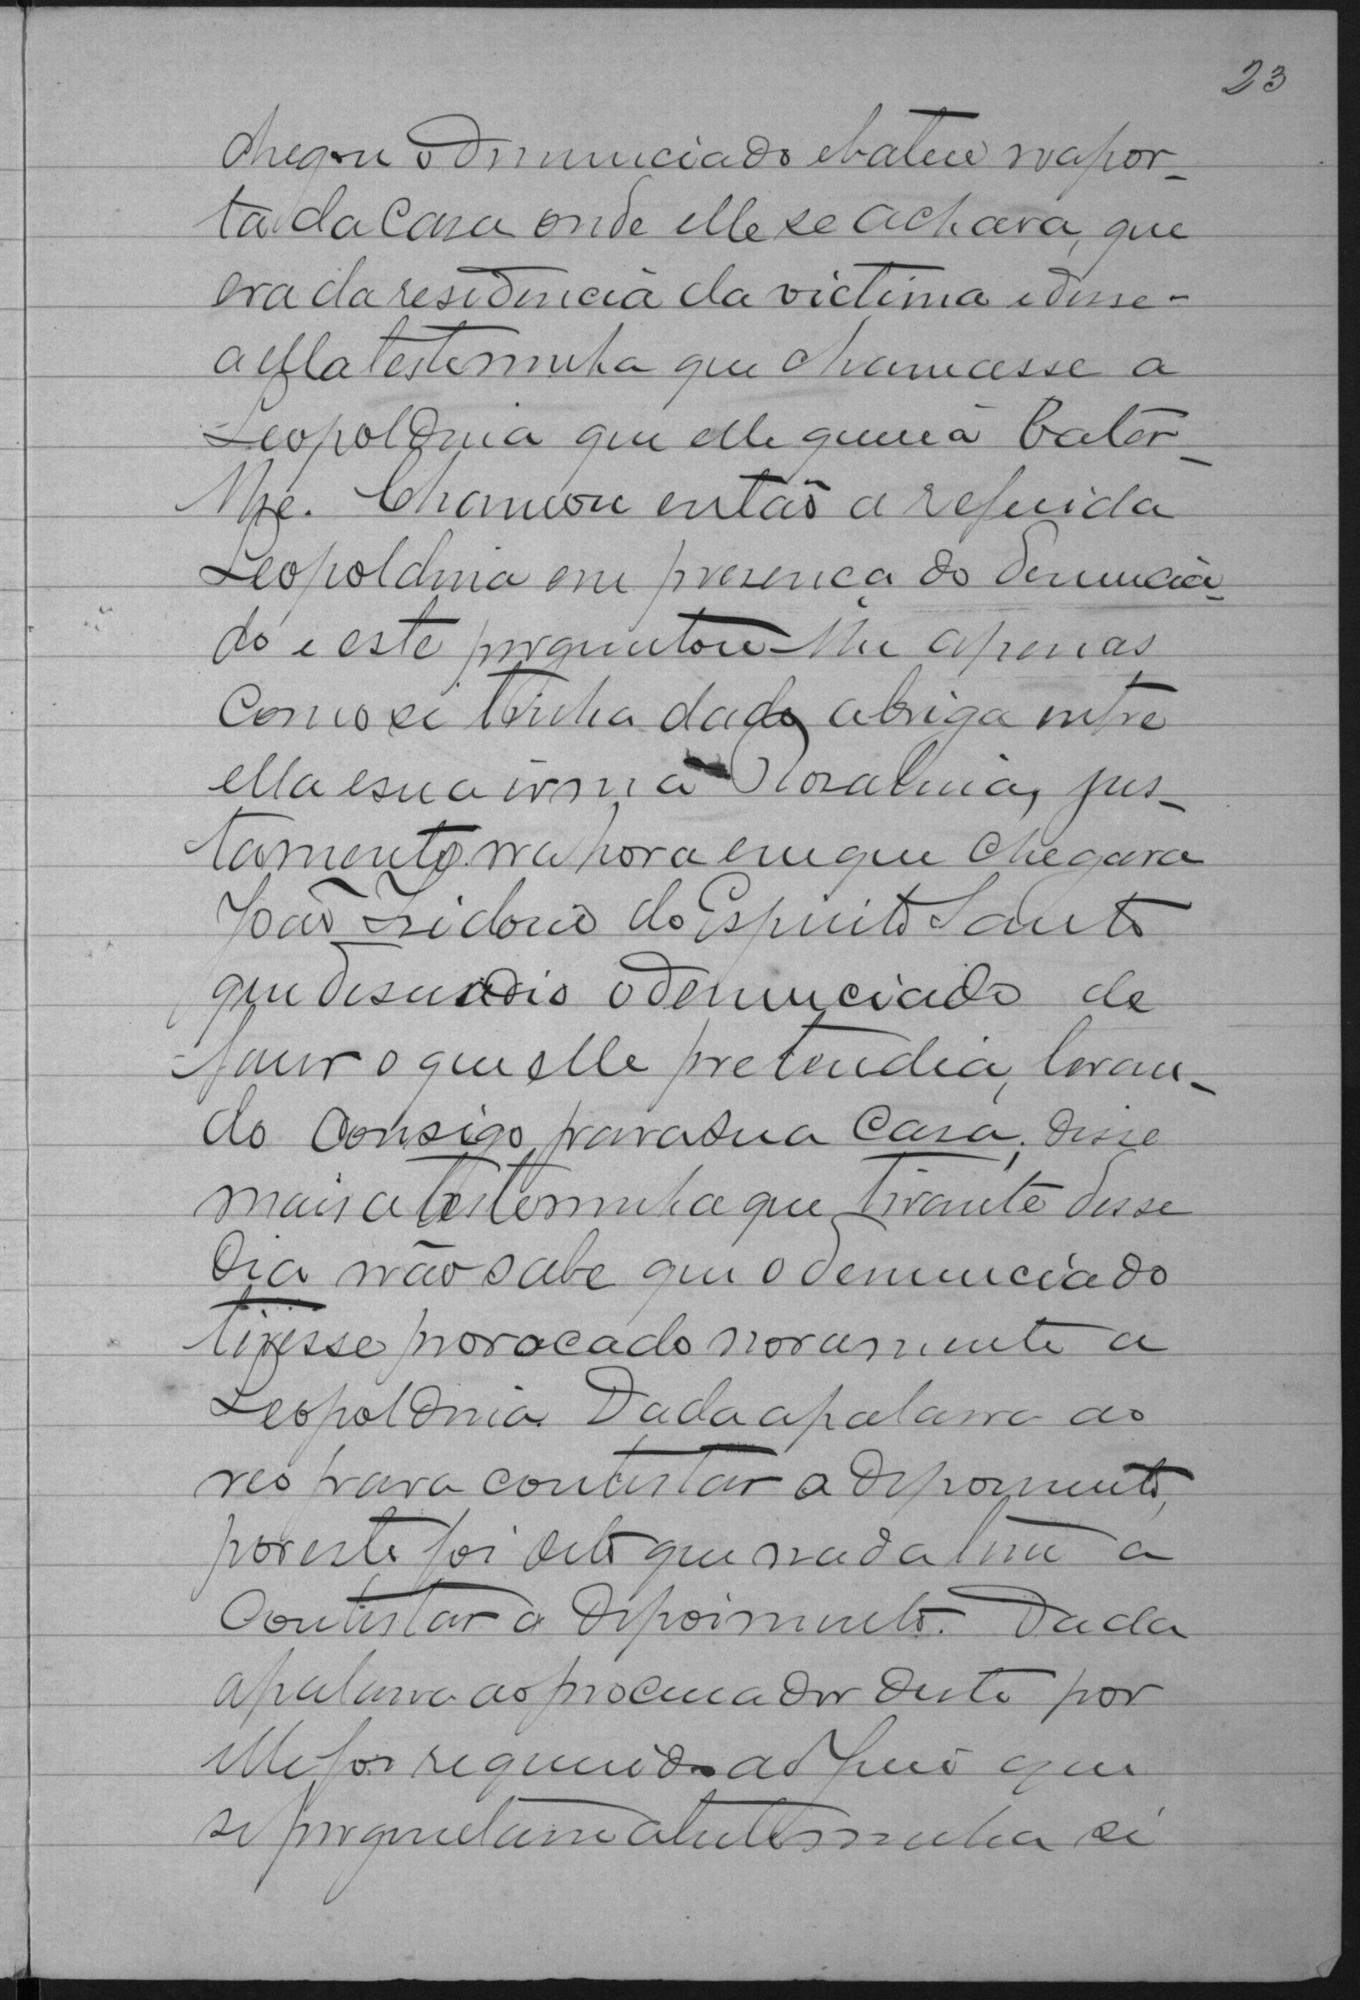 23
chegou o denunciado e bateu na por-
ta da casa onde elle se achava, que
era da residencia da victima e disse-
a ella testeminha que chamasse a
Leopoldina que elle queria bater-
lhe. Chamou então a referida
Leopoldina em presença do denuncia-
do e este perguntou-lhe apenas
como se tinha dado a briga entre
ella e sua irmã Rosalina, jus-
tamente na hora em que chegara
João Izidorio do Espirito Santo
que desuadio o denunciado de
fazer o que elle pretendia, levan-
do consigo para sua casa; disse
mais a testeminha que tirante desse
dia não sabe que o denunciado
tivesse provocado novamente a
Leopoldina. Dada a palavra ao
reo para contestar o depoimento,
por este foi dito que nada tem a
contestar o depoimento. Dada
a palavra ao procurador deste por
elle foi requerido ao Juiz que
se perguntasse a testeminha si